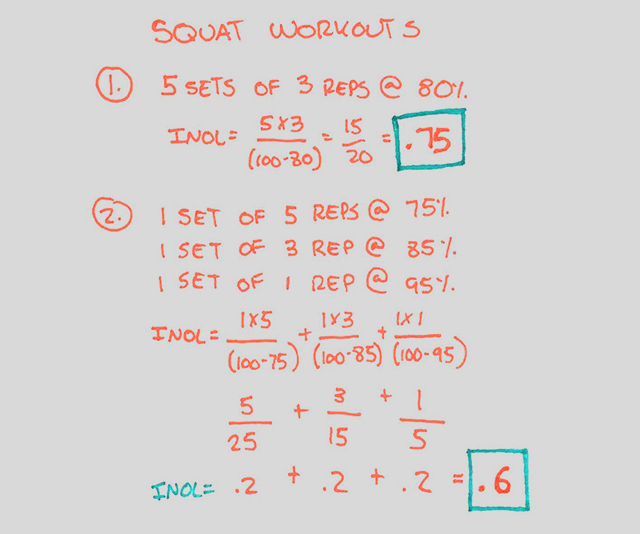 SQUAT WORKOUTS
1. 5 SETS OF 3 REPS @ 80%.
INOL = 5x3/(100-80) = 15/20 = .75
2. 1 SET OF 5 REPS @ 75%.
1 SET OF 3 REP @ 85%.
1 SET OF 1 REP @ 95%.
INOL = 1x5/(100-75) + 1x3/(100-85) + 1x1/(100-95)
5/25 + 3/15 + 1/5
INOL = .2 + .2 + .2 = .6